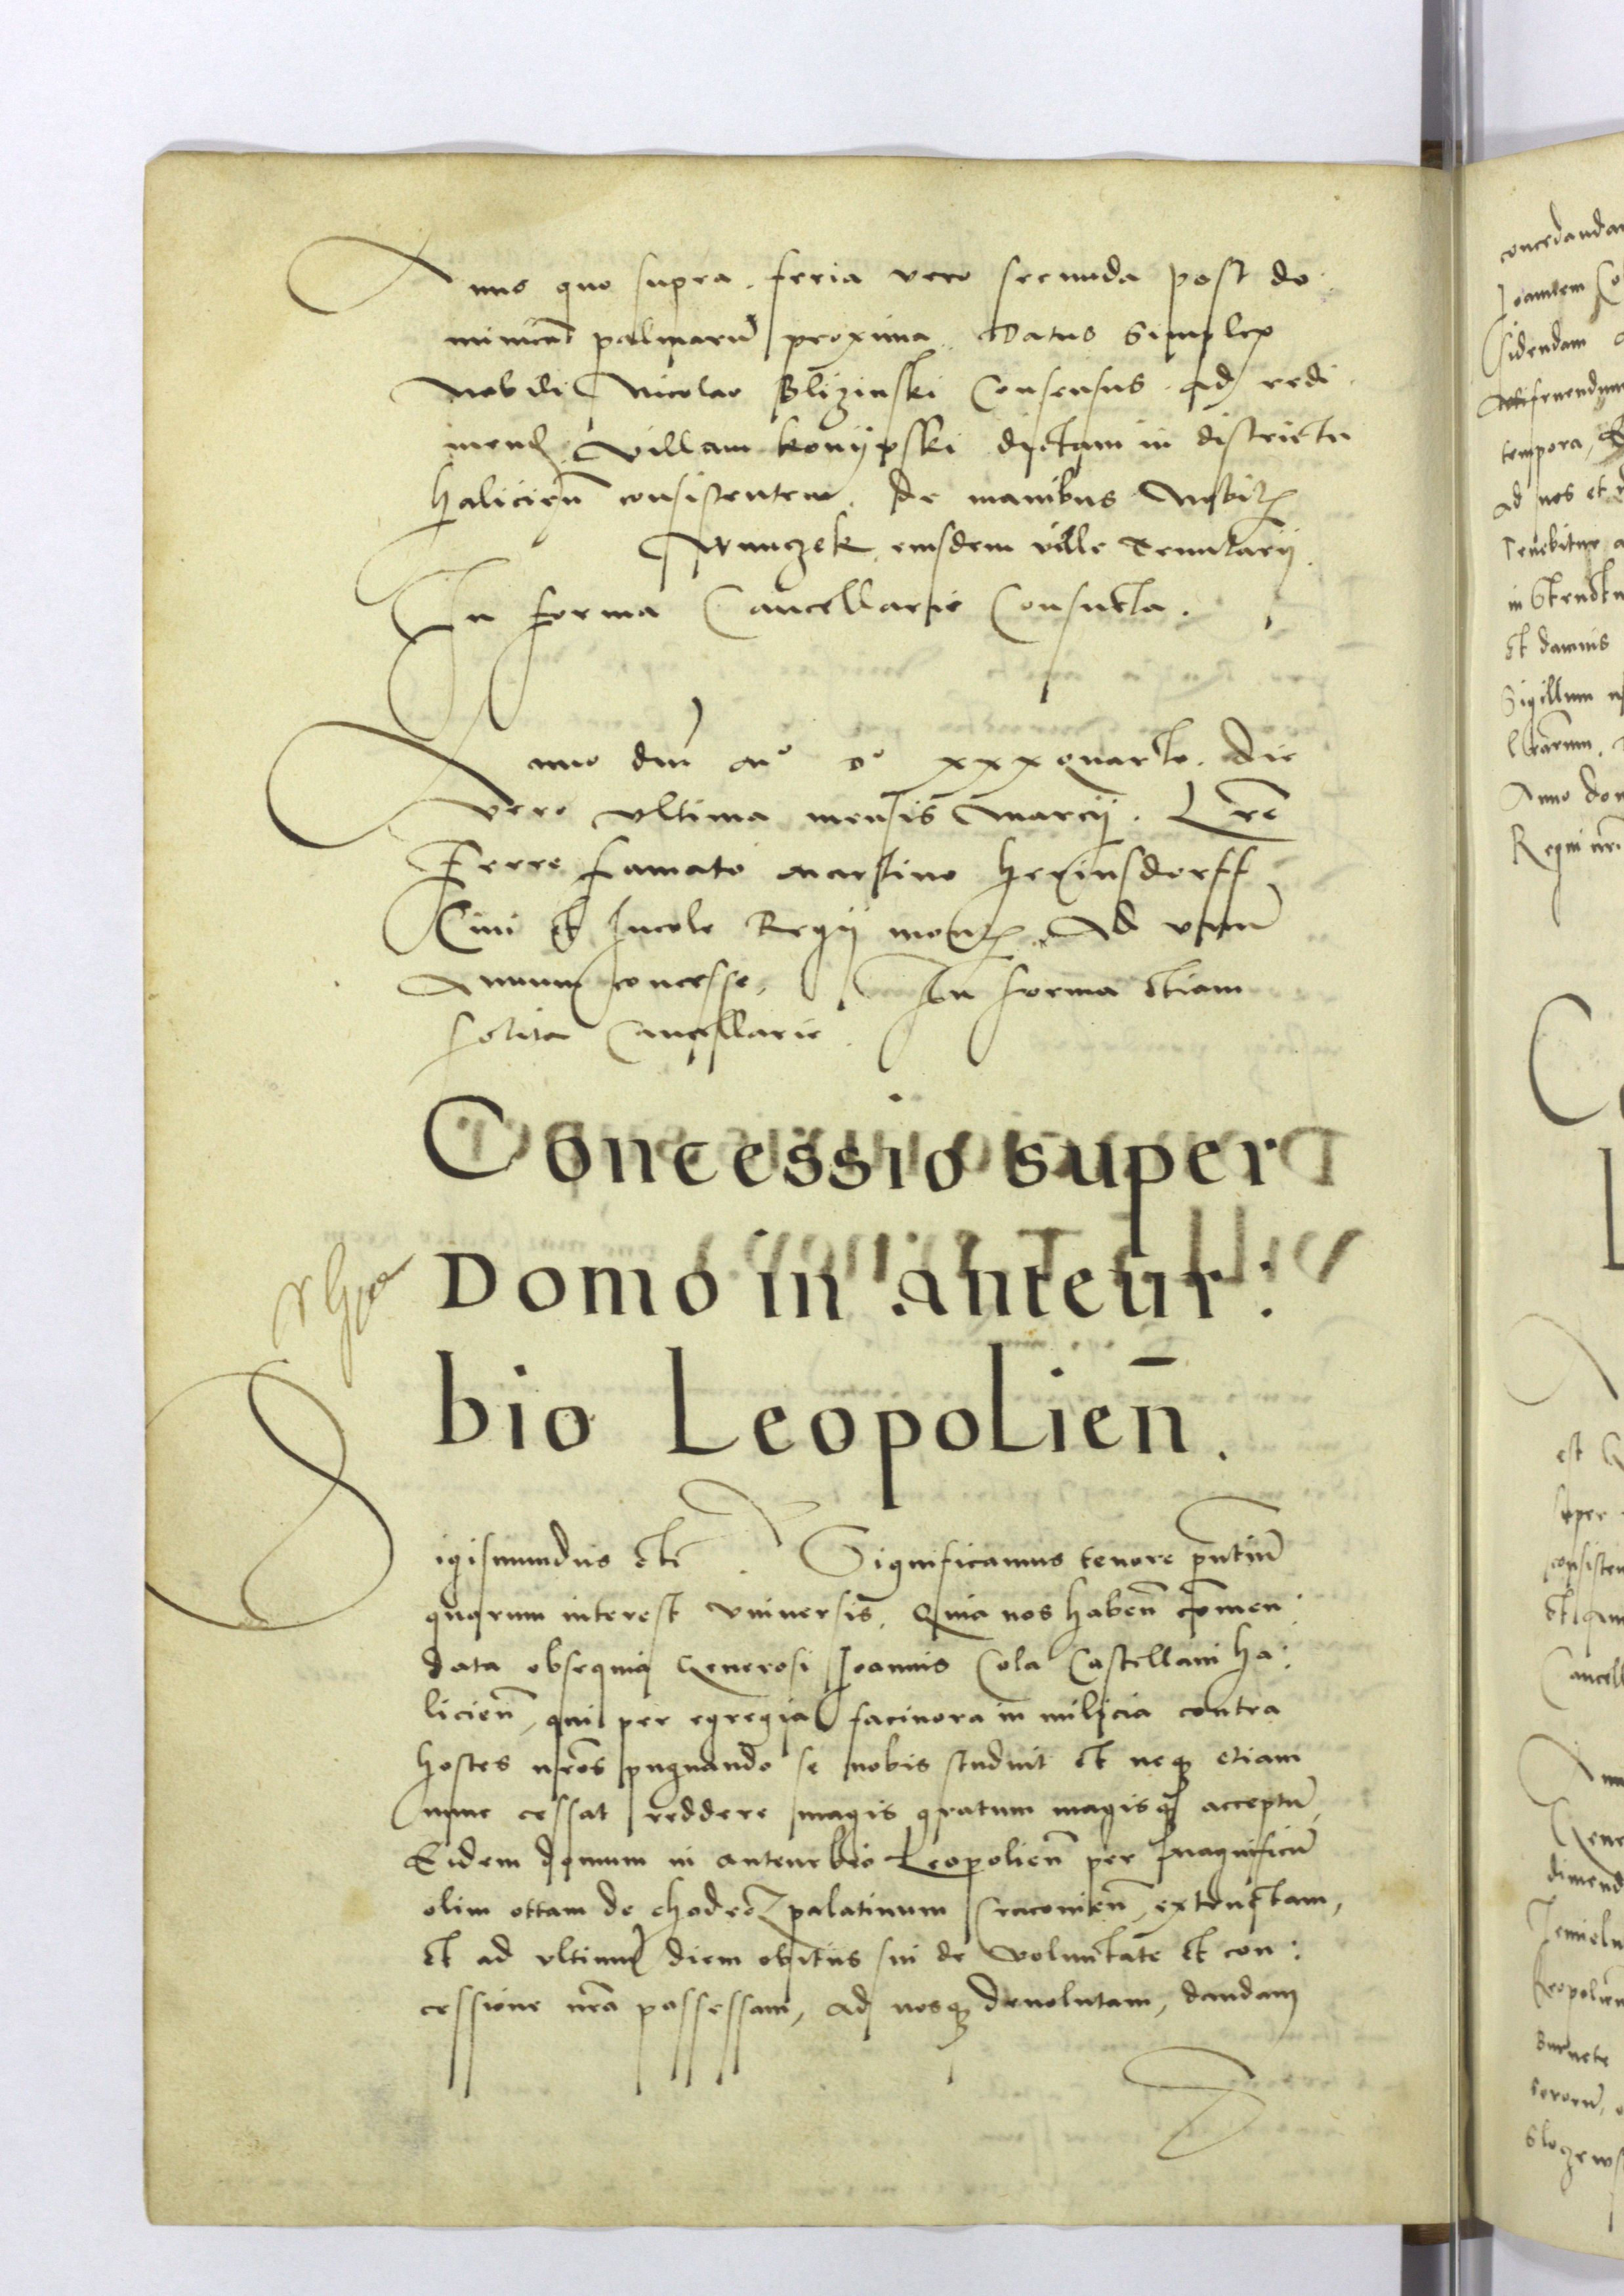 Anno quo supra . feria vero secunda post do
minicā palmarū proxima . Datus Simplex
Nobili Nicolao Blizinski Consensus . ad redi
mend villam konijpski dictam in districtu
halicieñ consistentem . De manibus Nobil
eiusdem ville Tenutarij
In forma Cancellarie Consueta .
Anno dm̄ Mº dº xxxquarto . die
vero vltima mensis Marcij . Lrē
Ferre famato Martino hexinsdorff
Ciui et Incole Regij mont Ad vnū
Annum concesse, In forma etiam
solita Cancellarie .
Concessio super
Domo in anteur:
bio Leopolieñ .
Sigismundus etc . Significamus tenore pñtiū
quorum interest vniuersis, Quia nos habeñ com̄en:
data obsequia Generosi Joannis Cola Castellani ha:
licieñ, qui per egregia facinora in milicia contra
hostes nrōs pugnando se nobis studuit et neq etiam
nunc cessat reddere magis gratum magisq acceptū,
Eidem domum in anteurbio Leopolieñ per Magnificū
olim ottam de chodecz palatinum Cracouieñ, extructam,
et ad vltimū diem obitus sui de voluntate et con:
cessione nrā possessam, ad nosq deuolutam, dandam
concedandam
tempora,
Tenebitur
et damnis
Sigillum
Anno
Regni nrī
est
super